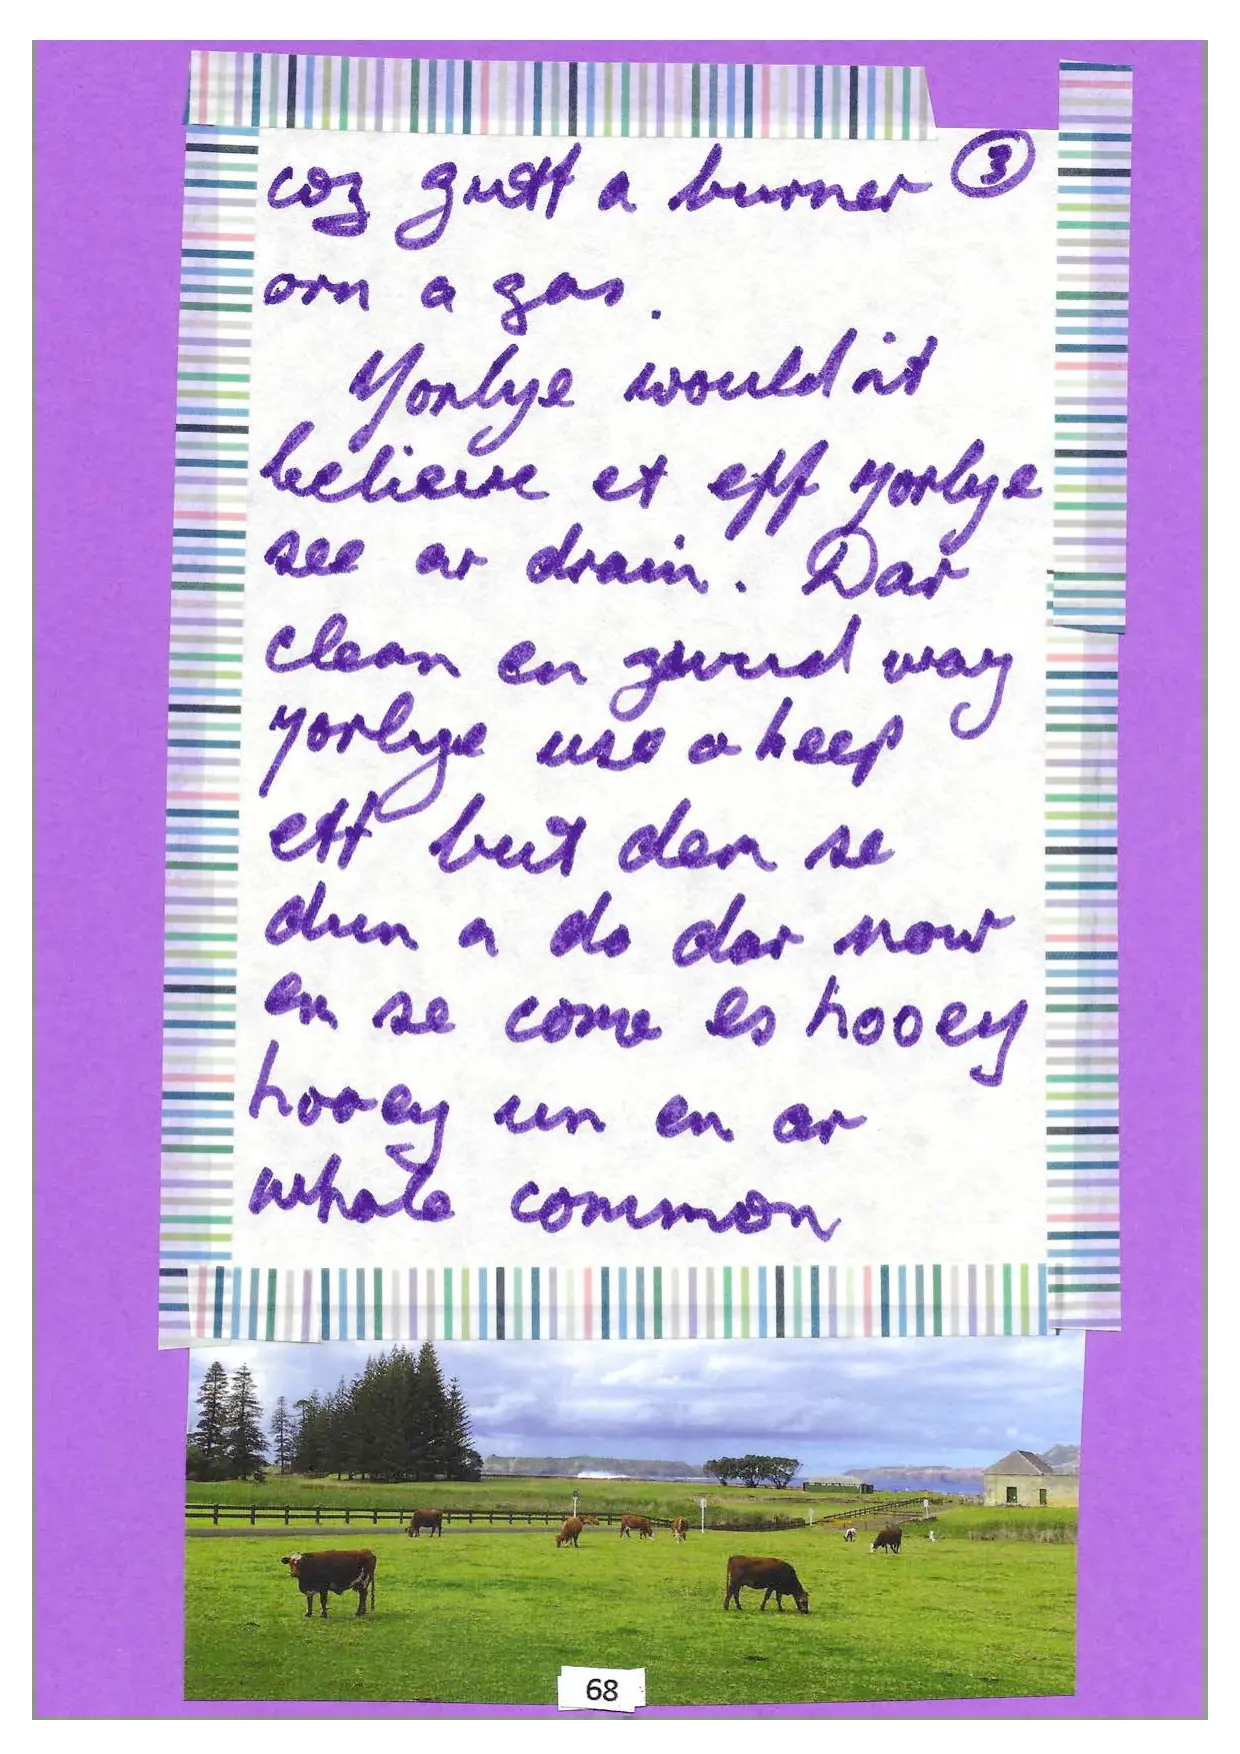 coz gutt a burner ③
orn a gas.
Yorlye wouldnt
believe et eff yorlye
see ar drain. Dar
clean en gwud way
yorlye use a keep
ett but dem se
dun a do dar now
en se come es hooey
hooey un en ar
whole common
68